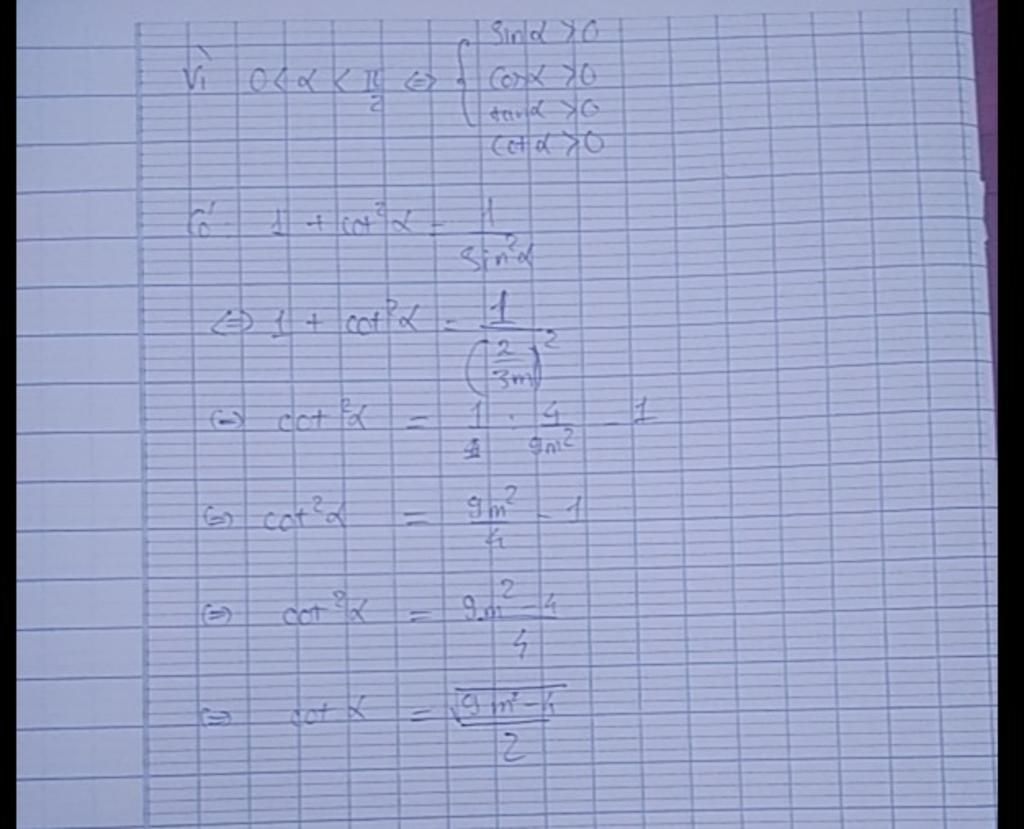 sinα > 0
Vì 0 < α < π/2 ⇔ { cosα > 0
tanα > 0
cotα > 0
Có 1 + cot²α = 1/sin²α
⇔ 1 + cot²α = 1/(2/3m)²
⇔ cot²α = 1/1 : 4/9m² - 1
⇔ cot²α = 9m²/4 - 1
⇔ cot²α = (9m² - 4)/4
⇔ cot α = √(9m² - 4)/2